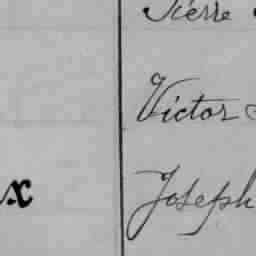 Pierre
Victor
x Joseph